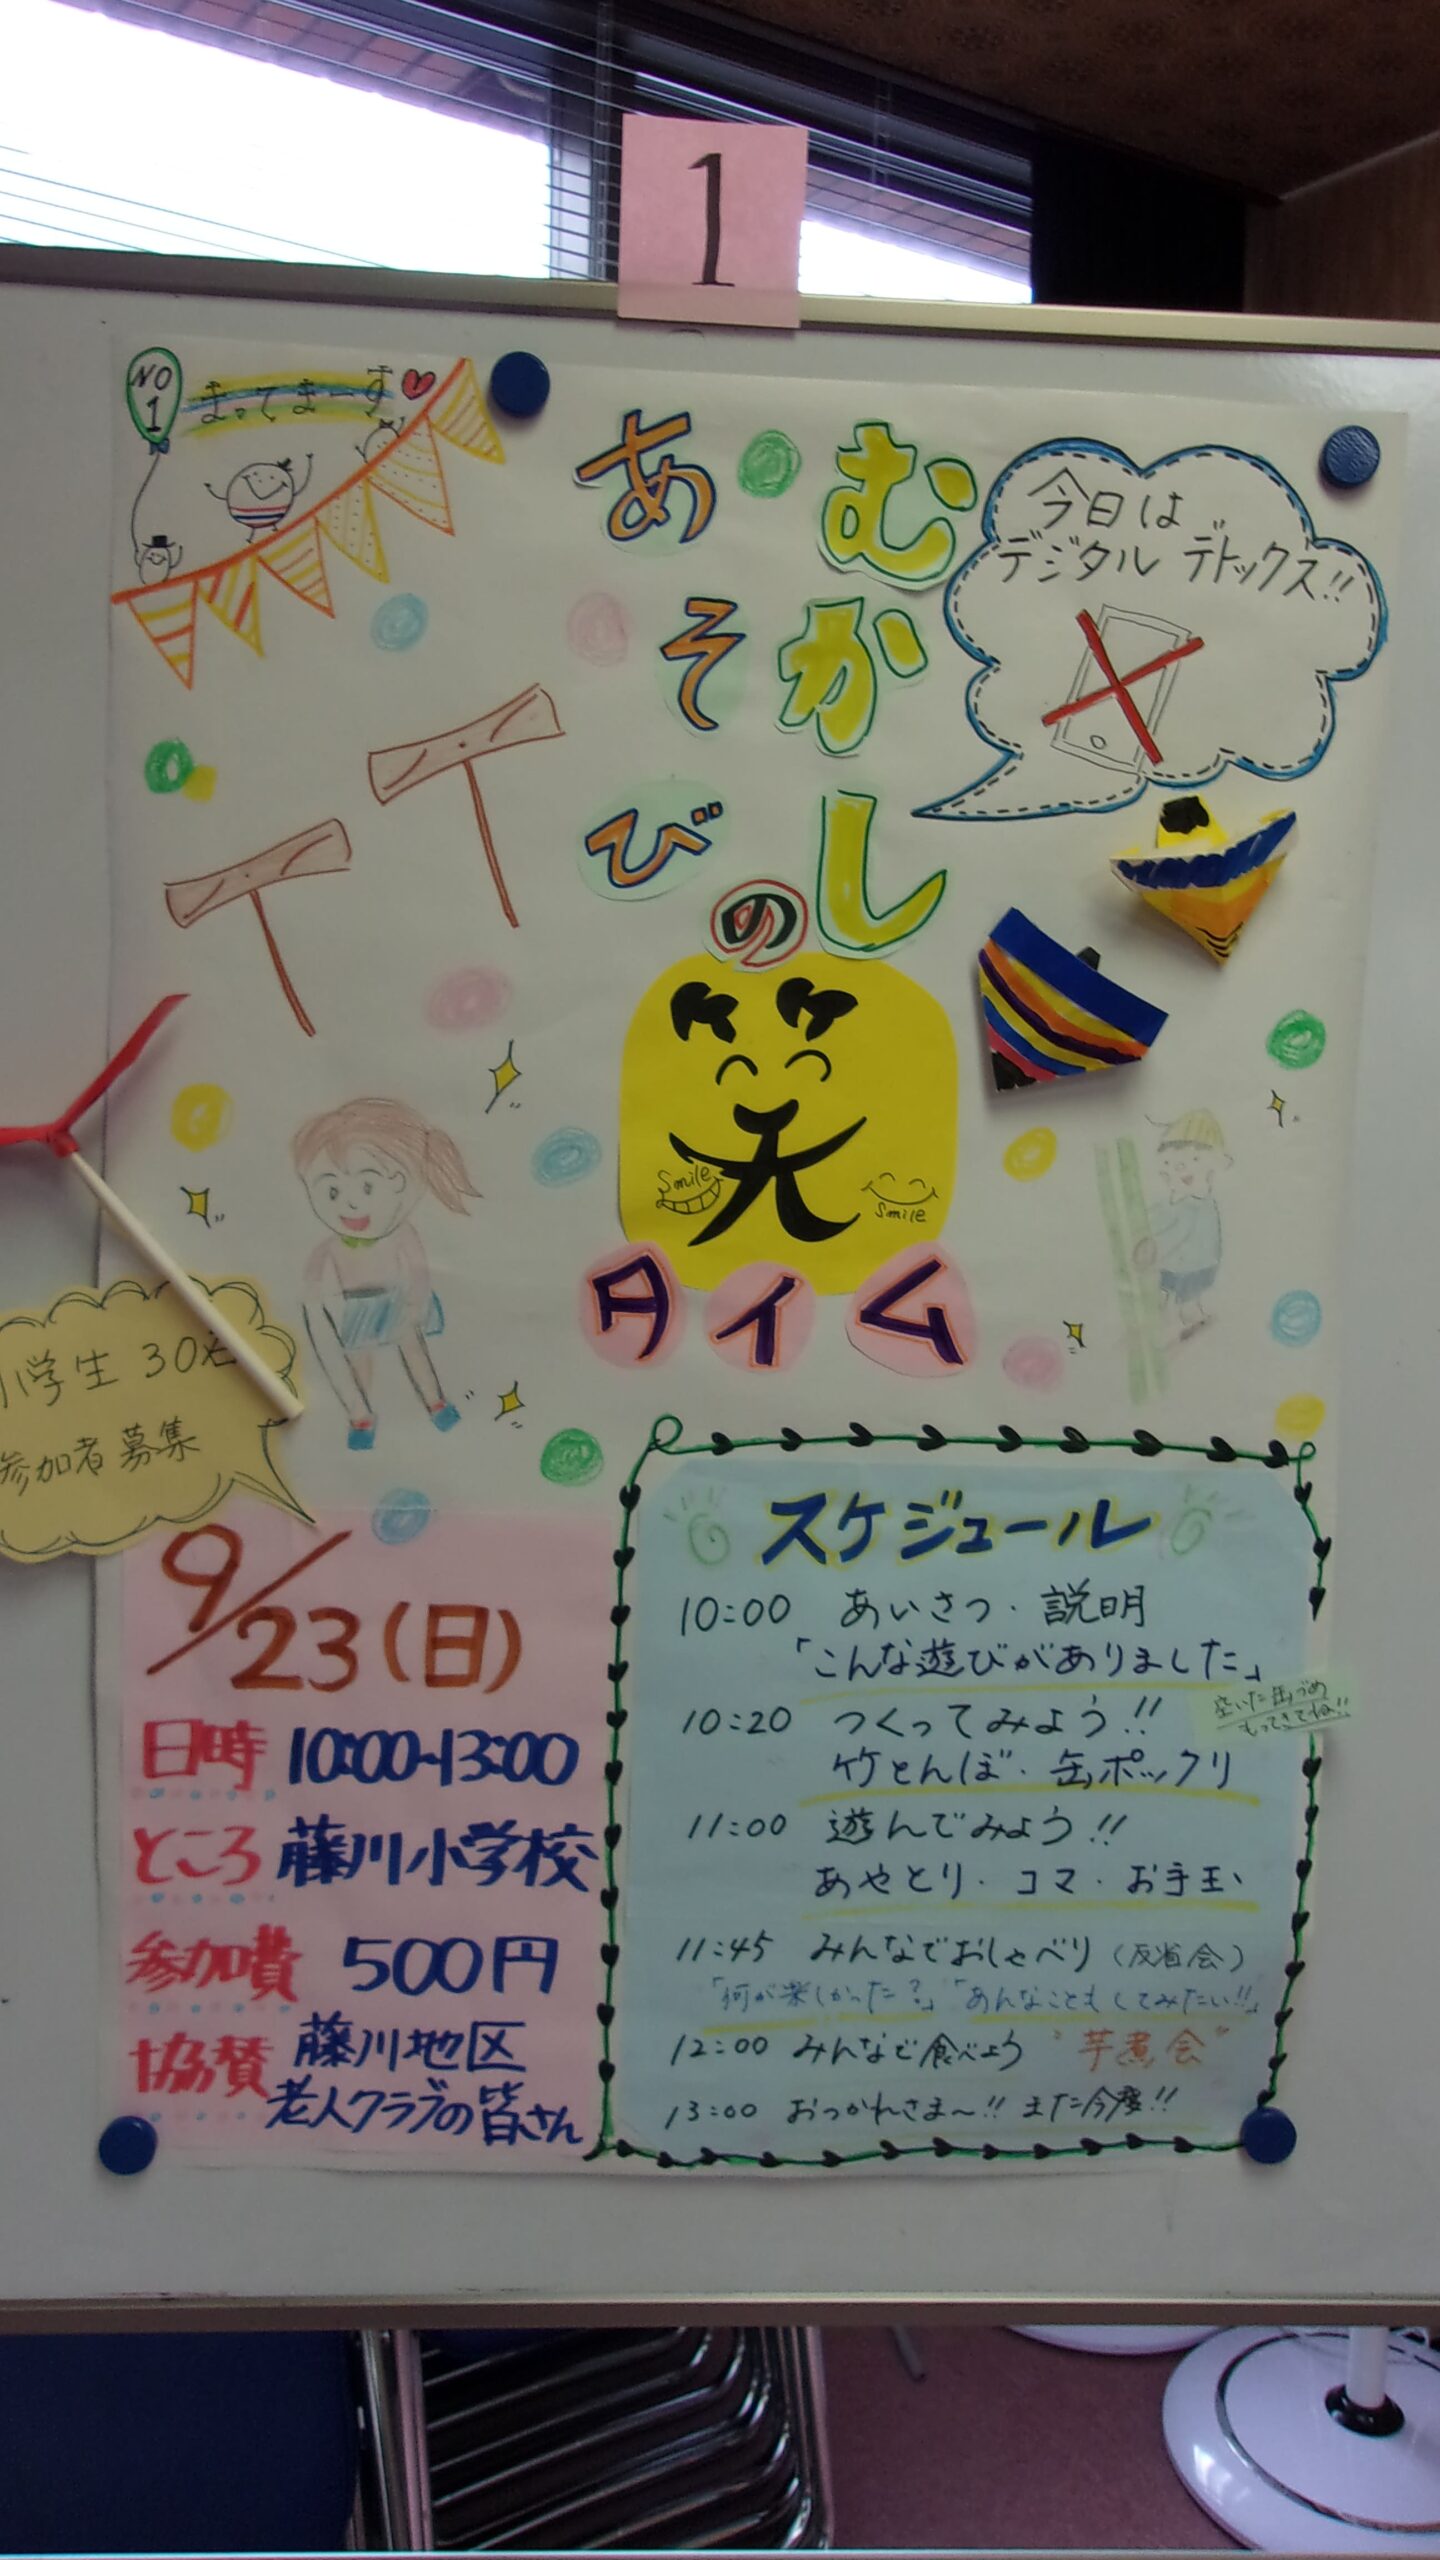 1
NO
1
まってまーす
むかし
あそび
の
笑
タイム
Smile
Smile
今日は
デジタル デトックス!!
小学生 30名
参加者募集
9/23(日)
日時 10:00~13:00
ところ 藤川小学校
参加費 500円
協賛 藤川地区
老人クラブの皆さん
スケジュール
10:00 あいさつ・説明
「こんな遊びがありました」
10:20 つくってみよう!!
竹とんぼ・缶ポックリ
空いた缶づめ
もってきてね!!
11:00 遊んでみよう!!
あやとり・コマ・お手玉
11:45 みんなでおしゃべり(反省会)
「何が楽しかった?」「あんなこともしてみたい!!」
12:00 みんなで食べよう "芋煮会"
13:00 おつかれさま~!! また今度!!